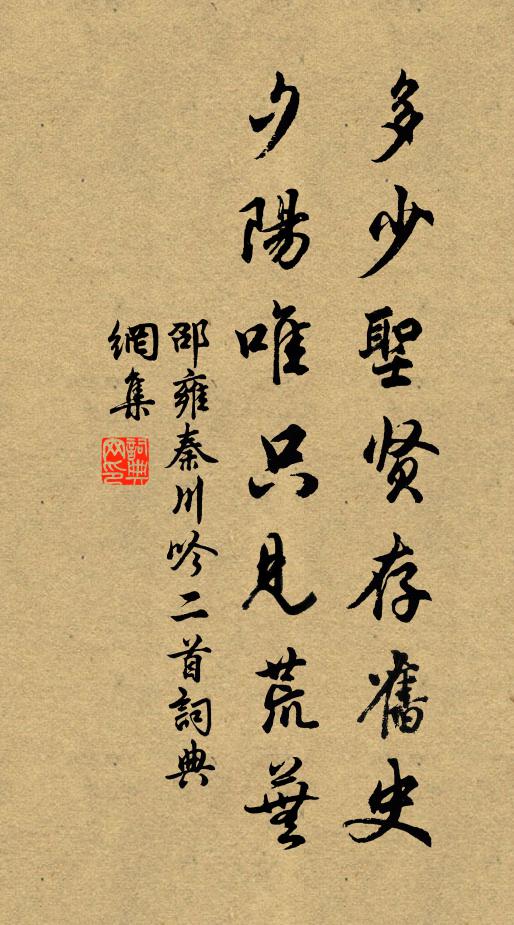 多少聖贤存舊史
夕陽唯只見荒蕪
邵雍秦川吟二首詞典
網集
詞典
网印